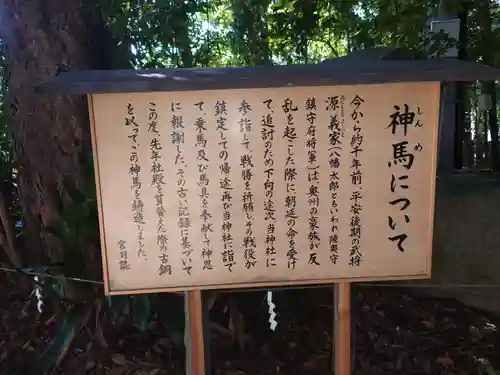 神馬について
しんめ
今から約千年前、平安後期の武将
源義家(八幡太郎ともいわれ陸奥守
みなもとのよしいえ
鎮守府将軍)は奥州の豪族が反
乱を起こした際に朝廷の命を受け
て、追討のため下向の途次、当神社に
参指して、戦勝を祈願し、その戦役が
鎮定しての帰途再び当神社に詣で
て、乗馬及び馬具を奉献して神恩
に報謝した。その古い記録に基づいて
この度、先年社殿を葺替えた際の古銅
を以って、この神馬を鋳造しました。
宮司誌